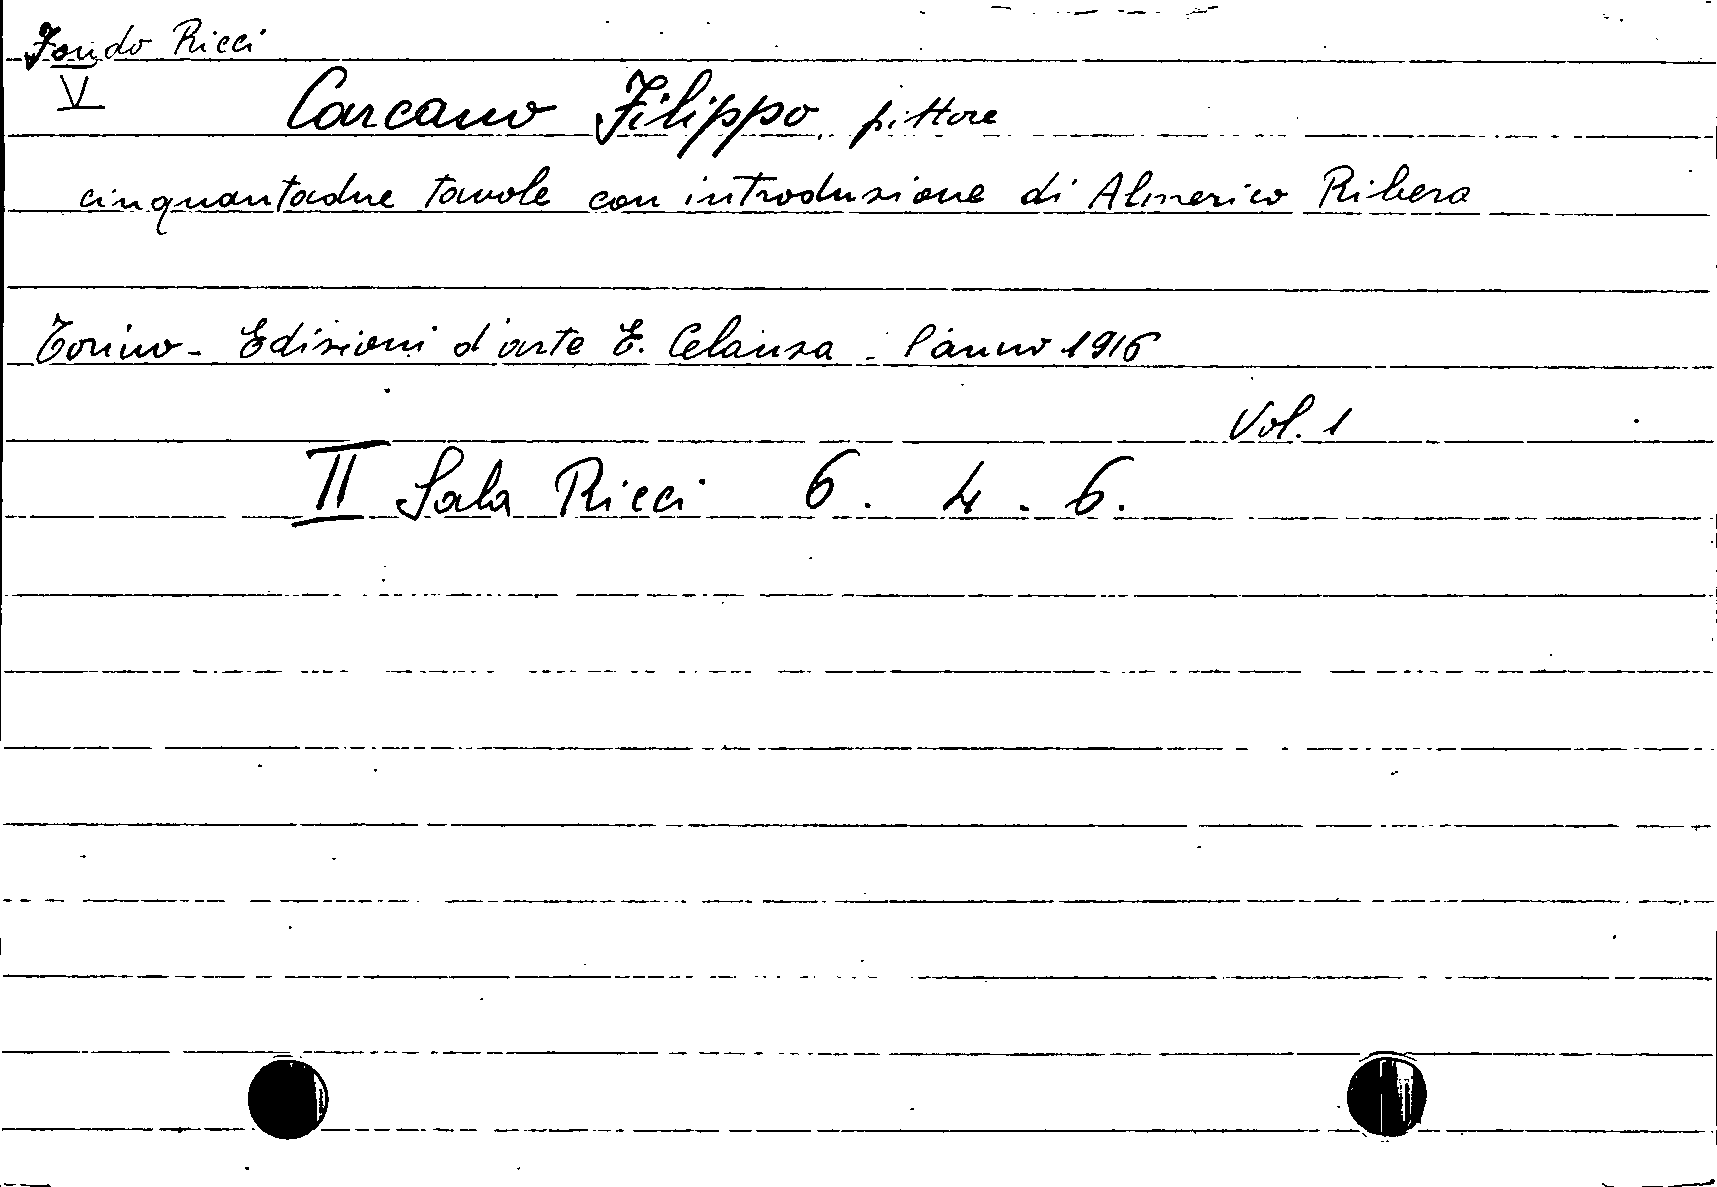 Fondo Ricci
V
Carcano Filippo, pittore
cinquantadue tavole con introduzione di Almerico Ribera
Torino - Edizioni d'arte E. Celanza - l'anno 1916
Vol. 1
II Sala Ricci 6. 4. 6.